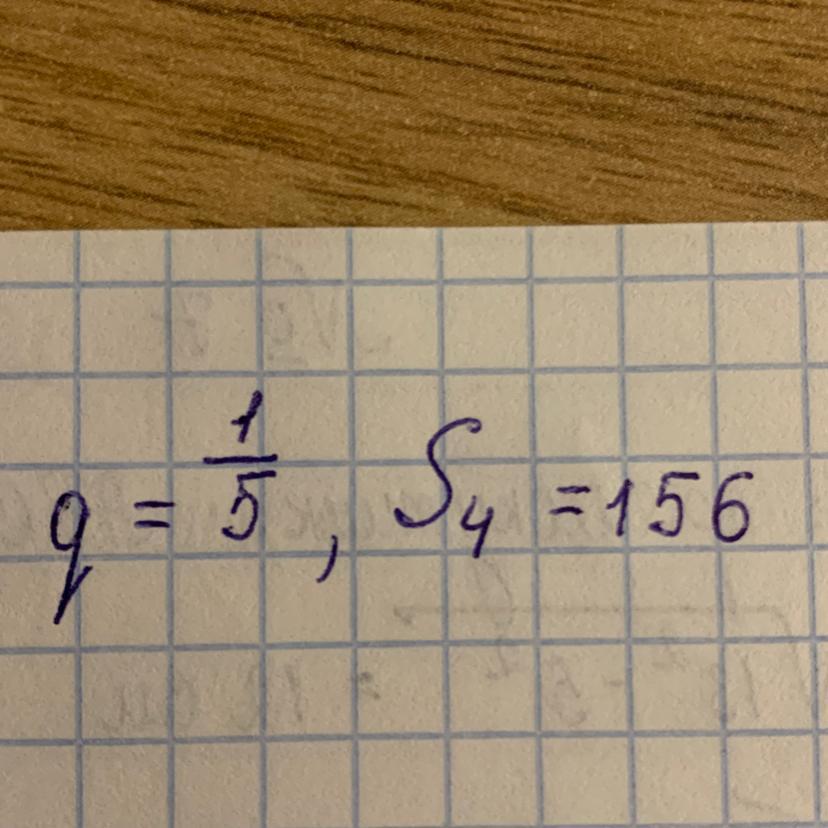 q = 1/5 , S₄ = 156